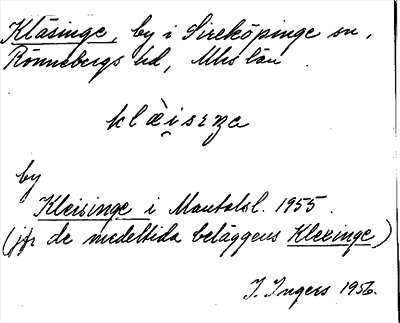 Kläsinge, by i Sireköpinge sn,
Rönnebergs hd, Mhs län
klæ̀i̯sɪŋe
by
Kleisinge i Mantalsl. 1955.
(jfr de medeltida beläggens Klexinge)
I. Ingers 1956.